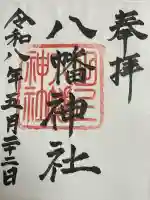 奉拝
八幡神社
令和八年五月二十二日